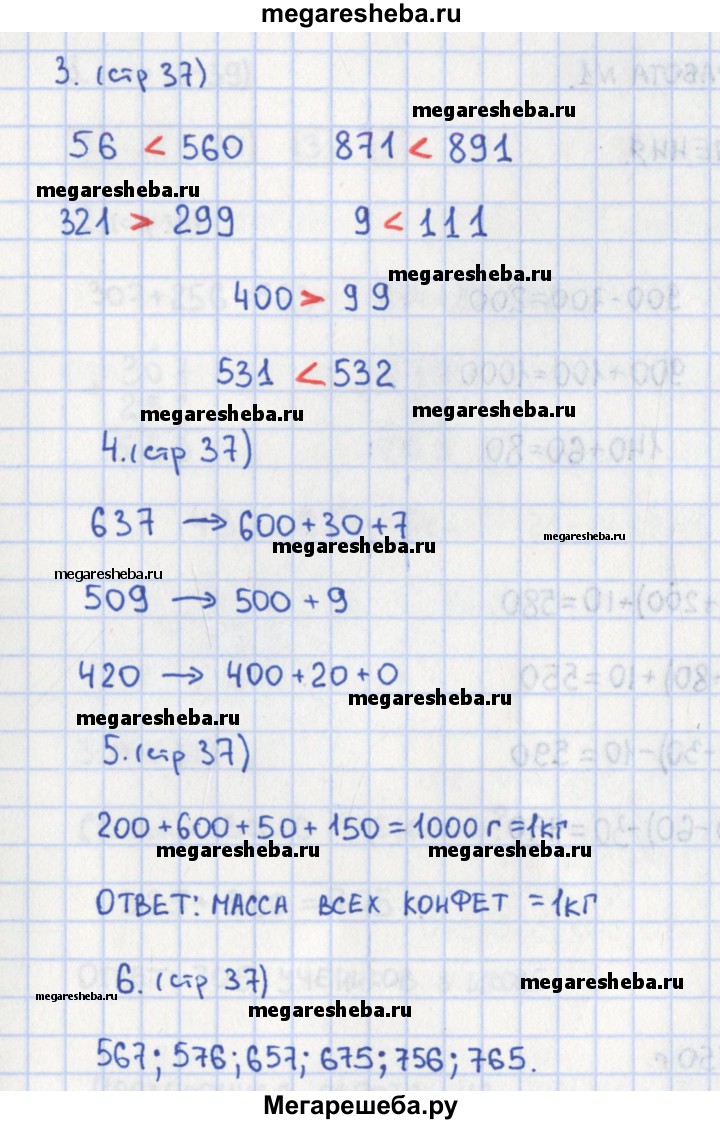 megaresheba.ru
3. (стр 37)
megaresheba.ru
56 < 560 871 < 891
megaresheba.ru
321 > 299 9 < 111
megaresheba.ru
400 > 99
531 < 532
megaresheba.ru megaresheba.ru
4. (стр 37)
637 → 600+30+7
megaresheba.ru megaresheba.ru
megaresheba.ru
509 → 500 + 9
420 → 400+20+0
megaresheba.ru
megaresheba.ru
5. (стр 37)
200+600+50+150=1000 г=1кг
megaresheba.ru megaresheba.ru
ОТВЕТ: МАССА ВСЕХ КОНФЕТ = 1КГ
6. (стр 37)
megaresheba.ru megaresheba.ru
megaresheba.ru
567; 576; 657; 675; 756; 765.
Мегарешеба.ру